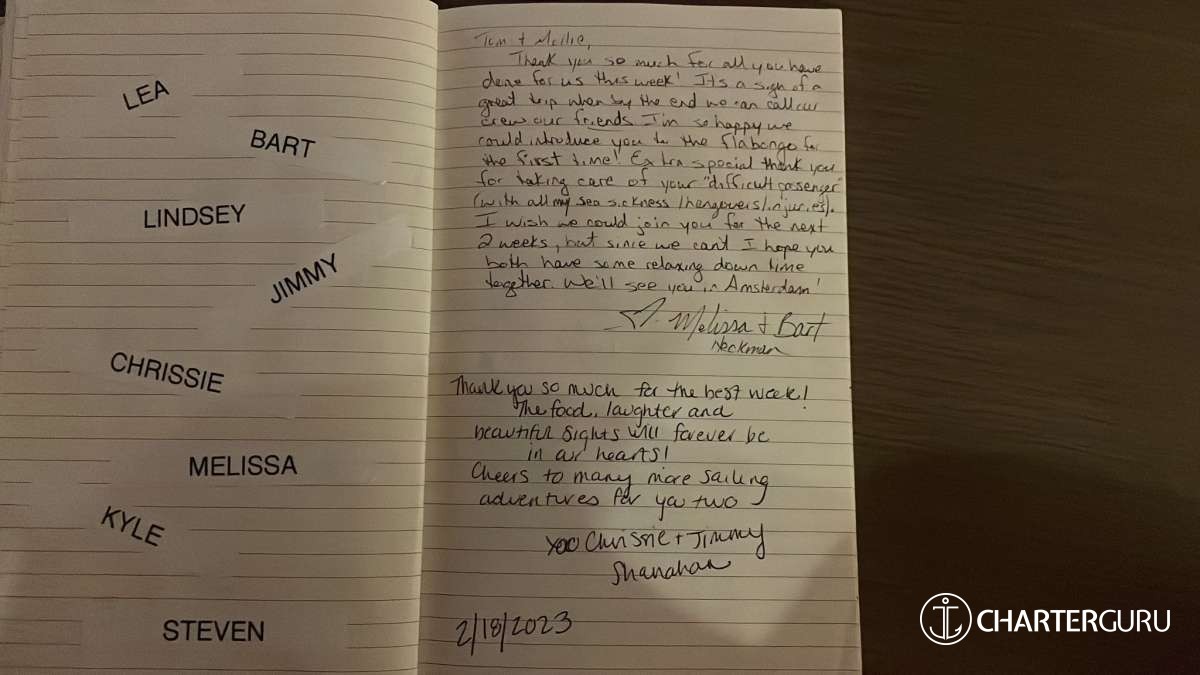 LEA
BART
LINDSEY
JIMMY
CHRISSIE
MELISSA
KYLE
STEVEN
Tom +
Thank you so much for all you have
done for us this week! Its a sign of a
great trip when by the end we can call our
crew our friends. I'm so happy we
could introduce you to the flabongo for
the first time! Extra special thank you
for taking care of your "difficult passenger"
(with all my sea sickness/hangovers/injuries).
I wish we could join you for the next
2 weeks, but since we can't I hope you
both have some relaxing down time
together. We'll see you in Amsterdam!
Melissa + Bart
Heckman
Thank you so much for the best week!
The food, laughter and
beautiful sights will forever be
in our hearts!
Cheers to many more sailing
adventures for you two
xoo Chrissie + Jimmy
Shanahan
2/18/2023
CHARTERGURU